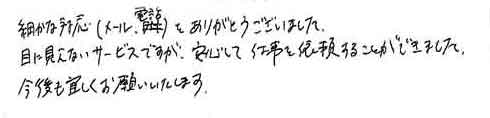 細かな対応(メール、電話)をありがとうございました。
目に見えないサービスですが、安心して仕事を依頼することができました。
今後も宜しくお願いいたします。